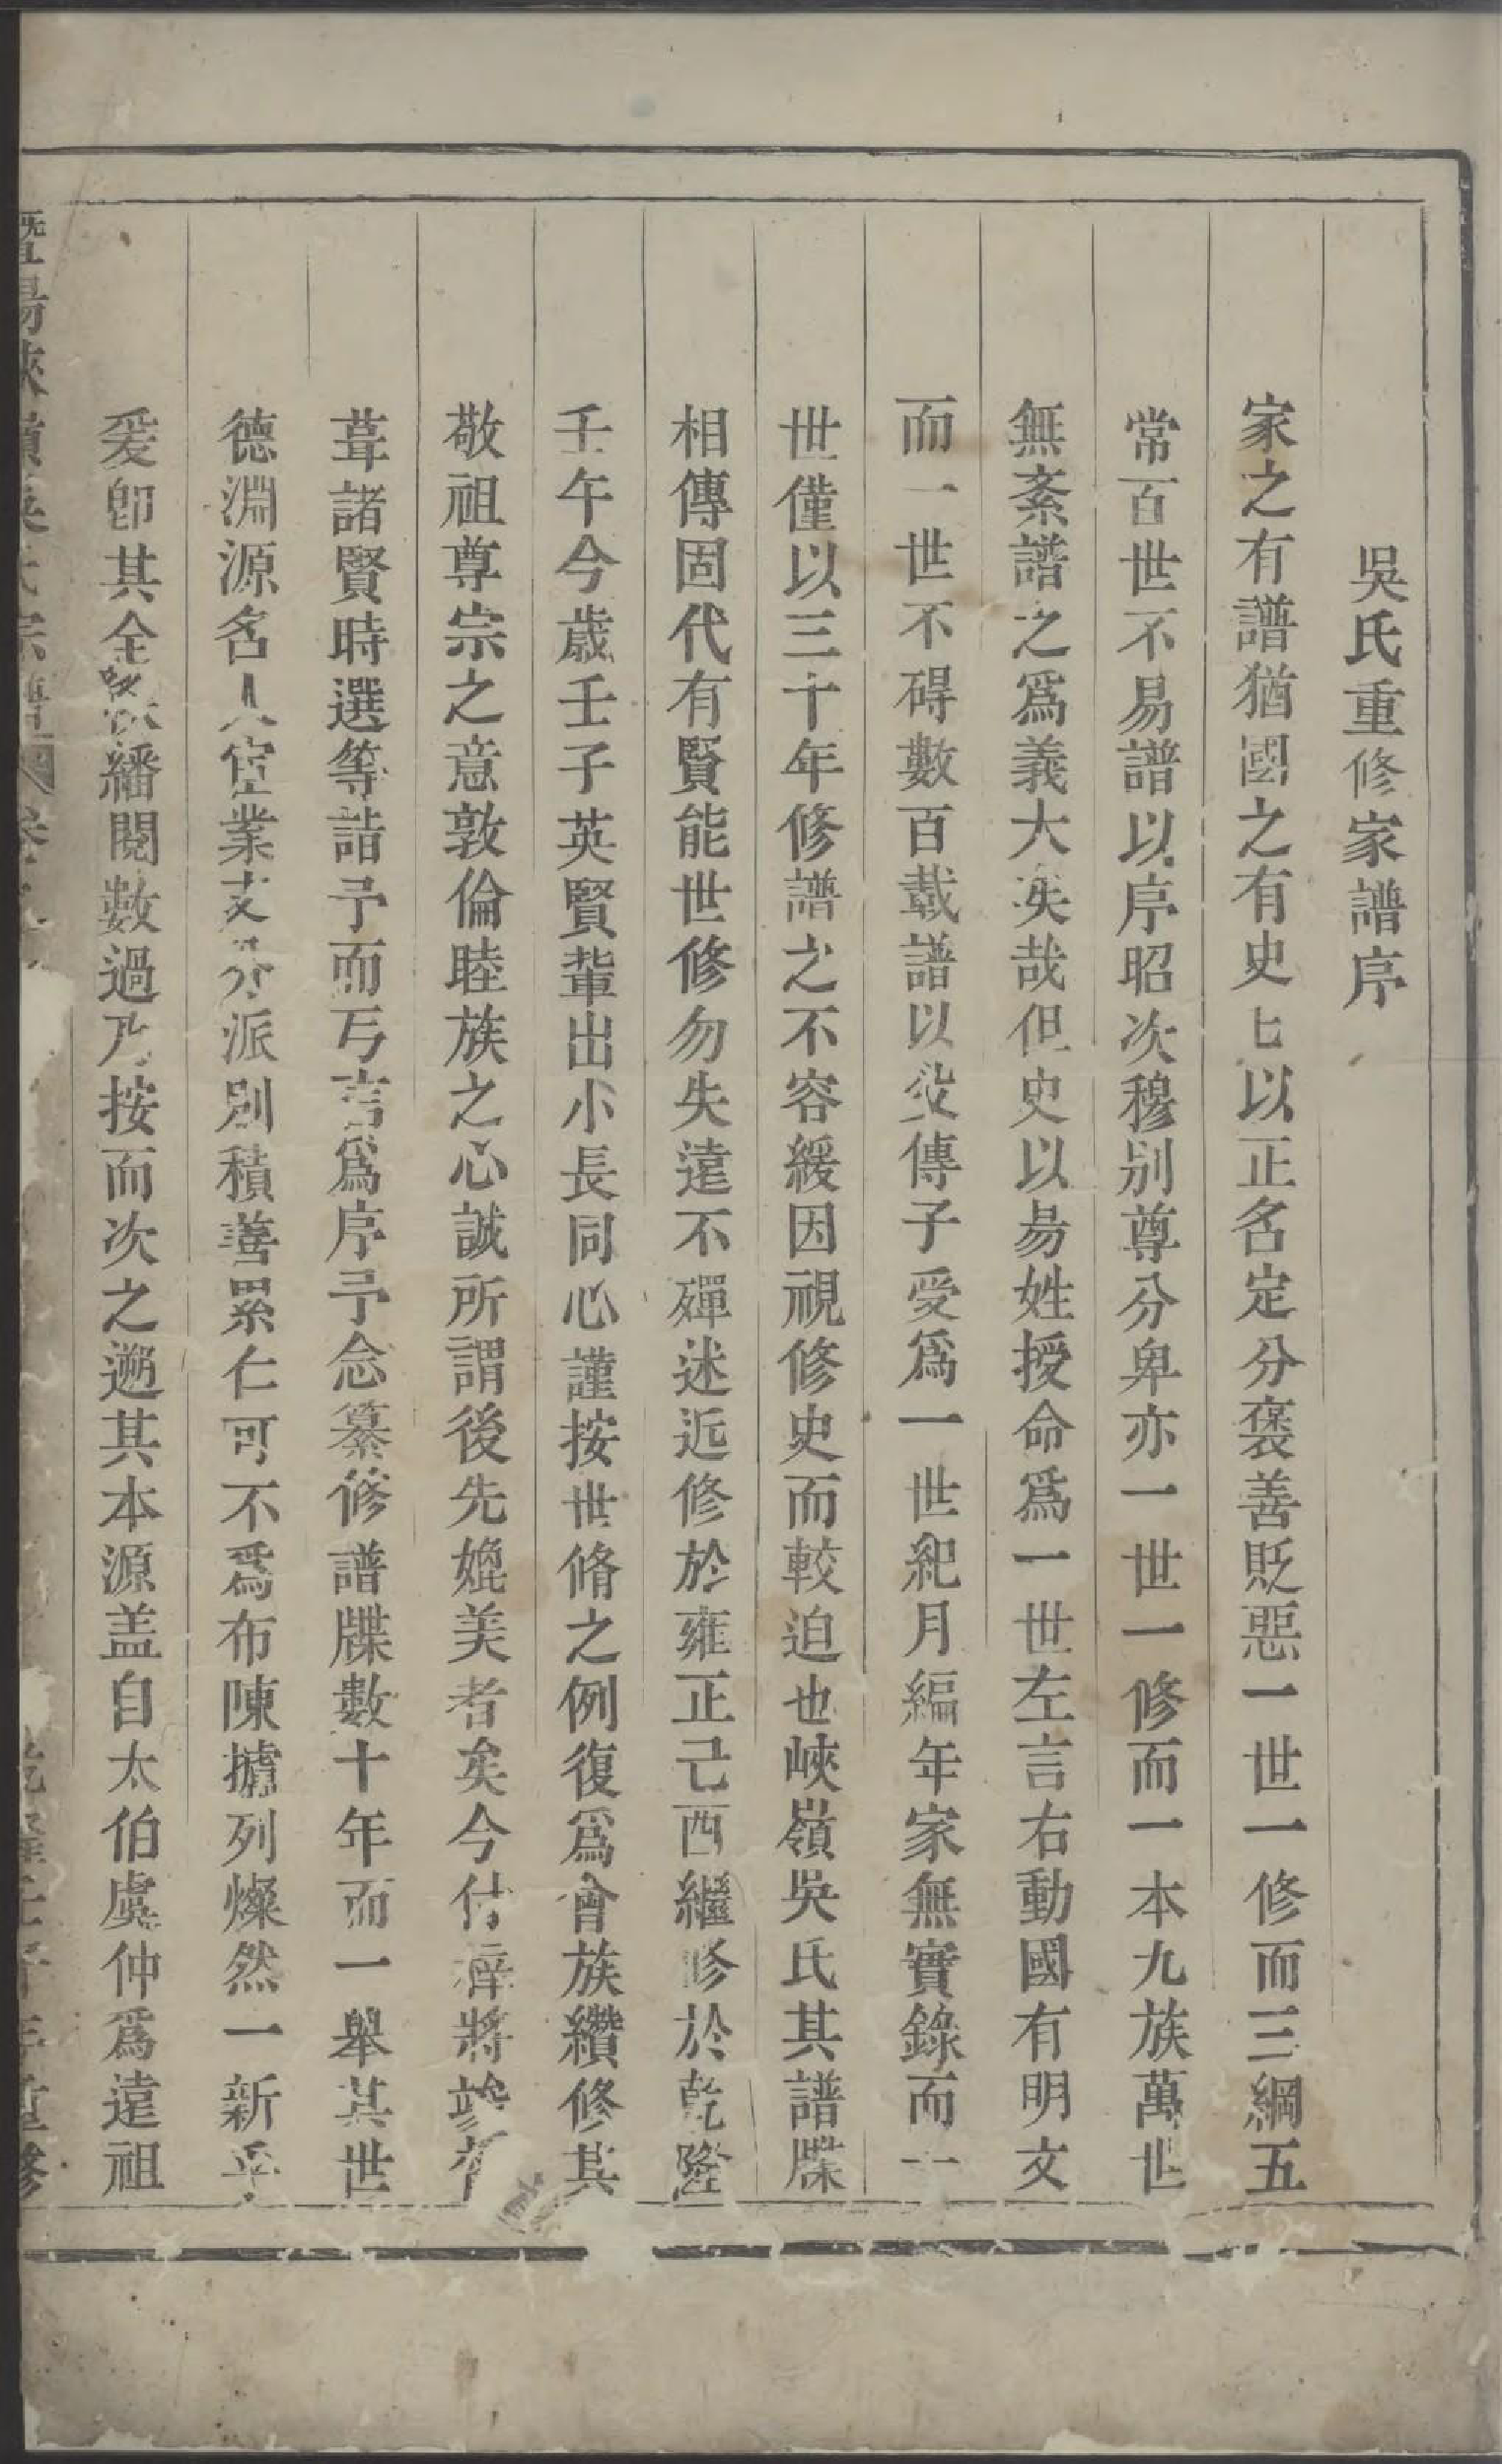 吳氏重修家譜序
家之有譜猶國之有史匕以正名定分褒善貶惡一世一修而三綱五
常百世不易譜以序昭次穆别尊分卑亦一世一修而一本九族萬世
無紊譜之爲義大矣哉但史以易姓授命爲一世左言右動國有明文
而一世不碍數百載譜以父傳子受爲一世紀月編年家無實錄而一
世僅以三十年修譜之不容緩因視修史而較迫也峽嶺吳氏其譜牒
相傳固代有賢能世修勿失遠不殫述近修於雍正己酉繼修於乾隆
壬午今歲壬子英賢輩出小長同心謹按世脩之例復爲會族纘修其
敬祖尊宗之意敦倫睦族之心誠所謂後先媲美者矣今付梓將竣有
葺諸賢時選等詣予而丐言爲序予念纂修譜牒數十年而一舉其世
德淵源名人宦業支分派别積善累仁可不爲布陳攄列燦然一新乎
爰卽其全繙閱數過乃按而次之遡其本源盖自太伯虞仲爲遠祖
暨陽峽嶺吳氏宗譜 卷 乾隆壬子年重修